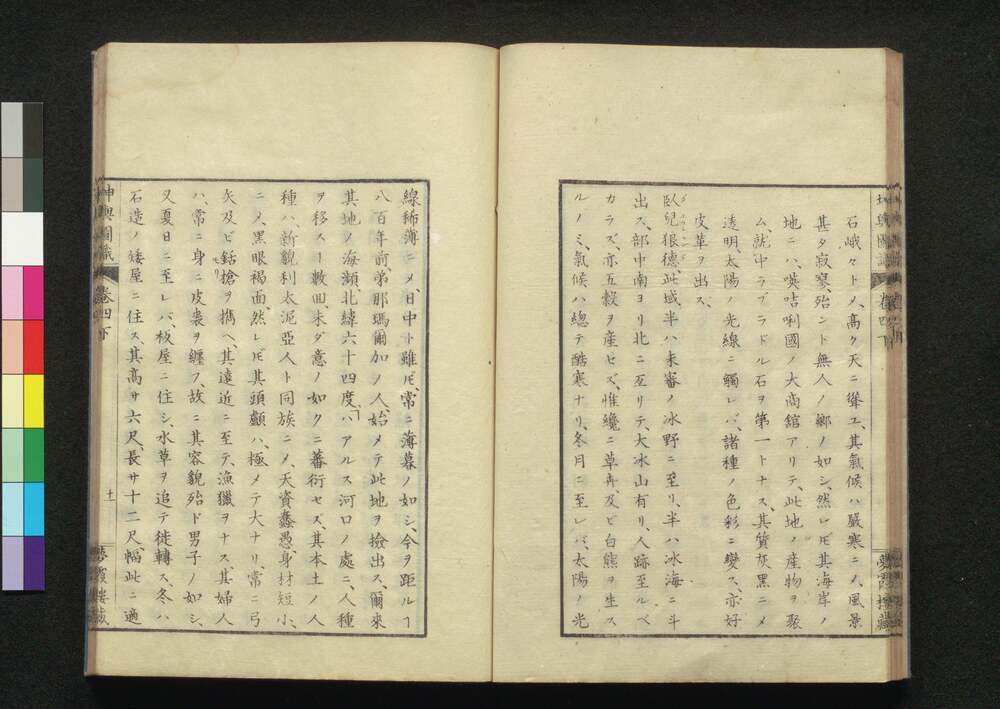 石峨々トメ、高ク天ニ聳エ、其氣候ハ嚴寒ニメ、風景
甚タ寂寥、殆ント無人ノ郷ノ如シ、然レ𪜈其海岸ノ
地ニハ、喫咭唎國ノ大商舘アリテ、此地ノ産物ヲ聚
ム、就中ラブラドル石ヲ第一トナス、其質灰黑ニメ
透明、太陽ノ光線ニ觸レバ、諸種ノ色彩ニ變ス、亦好
皮革ヲ出ス、
臥兒狼德、此域半ハ未審ノ氷野ニ至リ、半ハ冰海ニ斗
出ス、部中南ヨリ北ニ亙リテ、大冰山有リ、人跡至ルベ
カラズ、亦五穀ヲ産セズ、惟纔ニ草卉、及ビ白熊ヲ生ス
ルノミ、氣候ハ總テ酷寒ナリ、冬月ニ至レバ、太陽ノ光
線稀薄ニメ、日中ト雖𪜈、常ニ薄暮ノ如シ、今ヲ距ルヿ
八百年前、弟那瑪爾加ノ人、始メテ此地ヲ撿出ス、爾來
其地ノ海瀕、北緯六十四度、バアルス河口ノ處ニ、人種
ヲ移スヿ數回、未ダ意ノ如クニ蕃衍セズ、其本土ノ人
種ハ、新貌利太泥亞人ト同族ニメ、天資蠢愚、身材短小、
ニメ、黑眼褐面、然レ𪜈其頭顱ハ、極メテ大ナリ、常ニ弓
矢及ビ銛槍ヲ携ヘ、其遠近ニ至テ、漁獵ヲナス、其婦人
ハ、常ニ身ニ皮裘ヲ纏フ、故ニ其容貌殆ド男子ノ如シ、
又夏日ニ至レバ、板屋ニ住シ、水草ヲ追テ徙轉ス、冬ハ
石造ノ矮屋ニ住ス、其高サ六尺、長サ十二尺、幅此ニ適
坤輿圖識 卷四下 十一 夢霞樓藏